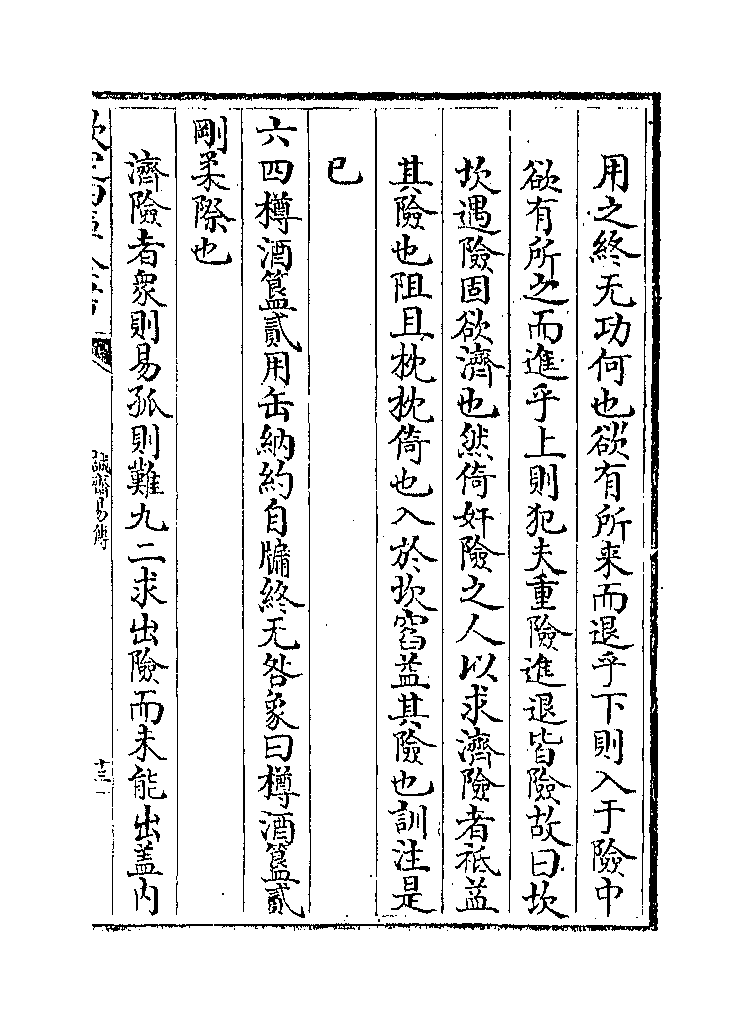 用之終无功何也欲有所来而退乎下則入于險中
欲有所之而進乎上則犯夫重險進退皆險故曰坎
坎遇險固欲濟也然倚奸險之人以求濟險者祗益
其險也阻且枕枕倚也入於坎窞益其險也訓注是
已
六四樽酒簋貳用缶納約自牖終无咎象曰樽酒簋貳
剛柔際也
濟險者衆則易孤則難九二求出險而未能出盖内
誠齋易傳
十三